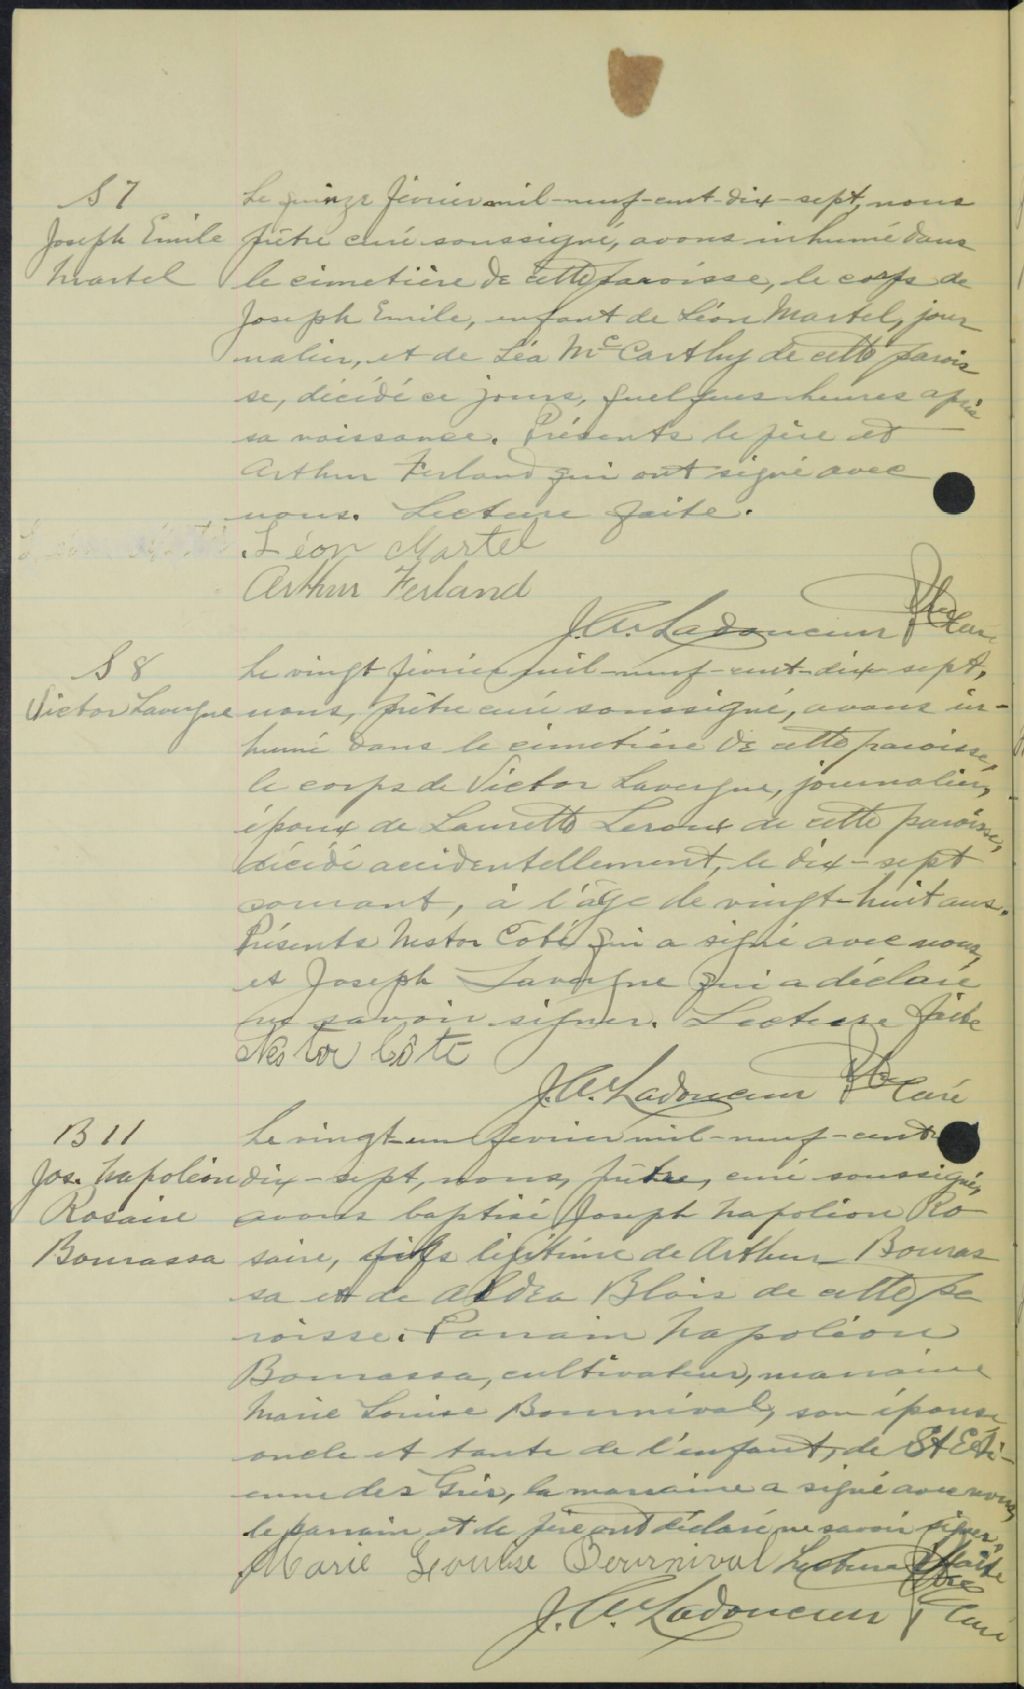 S 7
Joseph Emile
Martel
Le quinze février mil-neuf-cent-dix-sept, nous
prêtre curé soussigné, avons inhumé dans
le cimetière de cette paroisse, le corps de
Joseph Emile, enfant de Léon Martel, jour
nalier, et de Léa McCarthy de cette parois
se, décédé ce jours, quelques heures après
sa naissance. Présents le père et
Arthur Ferland qui ont signé avec
nous. Lecture faite.
Léon Martel
Arthur Ferland
J.A. Ladouceur Ptre Curé
S 8
Victor Lavergne
Le vingt février mil-neuf-cent-dix-sept,
nous, prêtre curé soussigné, avons in-
humé dans le cimetière de cette paroisse,
le corps de Victor Lavergne, journalier,
époux de Laurette Leroux de cette paroisse,
décédé accidentellement, le dix-sept
courant, à l'âge de vingt-huit ans.
Présents Nestor Coté qui a signé avec nous,
et Joseph Lavergne qui a déclaré
ne savoir signer. Lecture faite
Nestor Côté
J.A. Ladouceur Ptre Curé
B 11
Jos. Napoléon
Rosaire
Bourassa
Le vingt-un février mil-neuf-cent
dix-sept, nous, prêtre, curé soussigné,
avons baptisé Joseph Napoléon Ro
saire, fils légitime de Arthur Bouras
sa et de Aldea Blais de cette pa
roisse. Parrain Napoléon
Bourassa, cultivateur, marraine
Marie Louise Bournival, son épouse,
oncle et tante de l'enfant, de St Eti-
enne des Grès, la marraine a signé avec nous,
le parrain et le père ont déclaré ne savoir signer.
Marie Louise Bournival Lecture faite
J.A. Ladouceur Ptre Curé